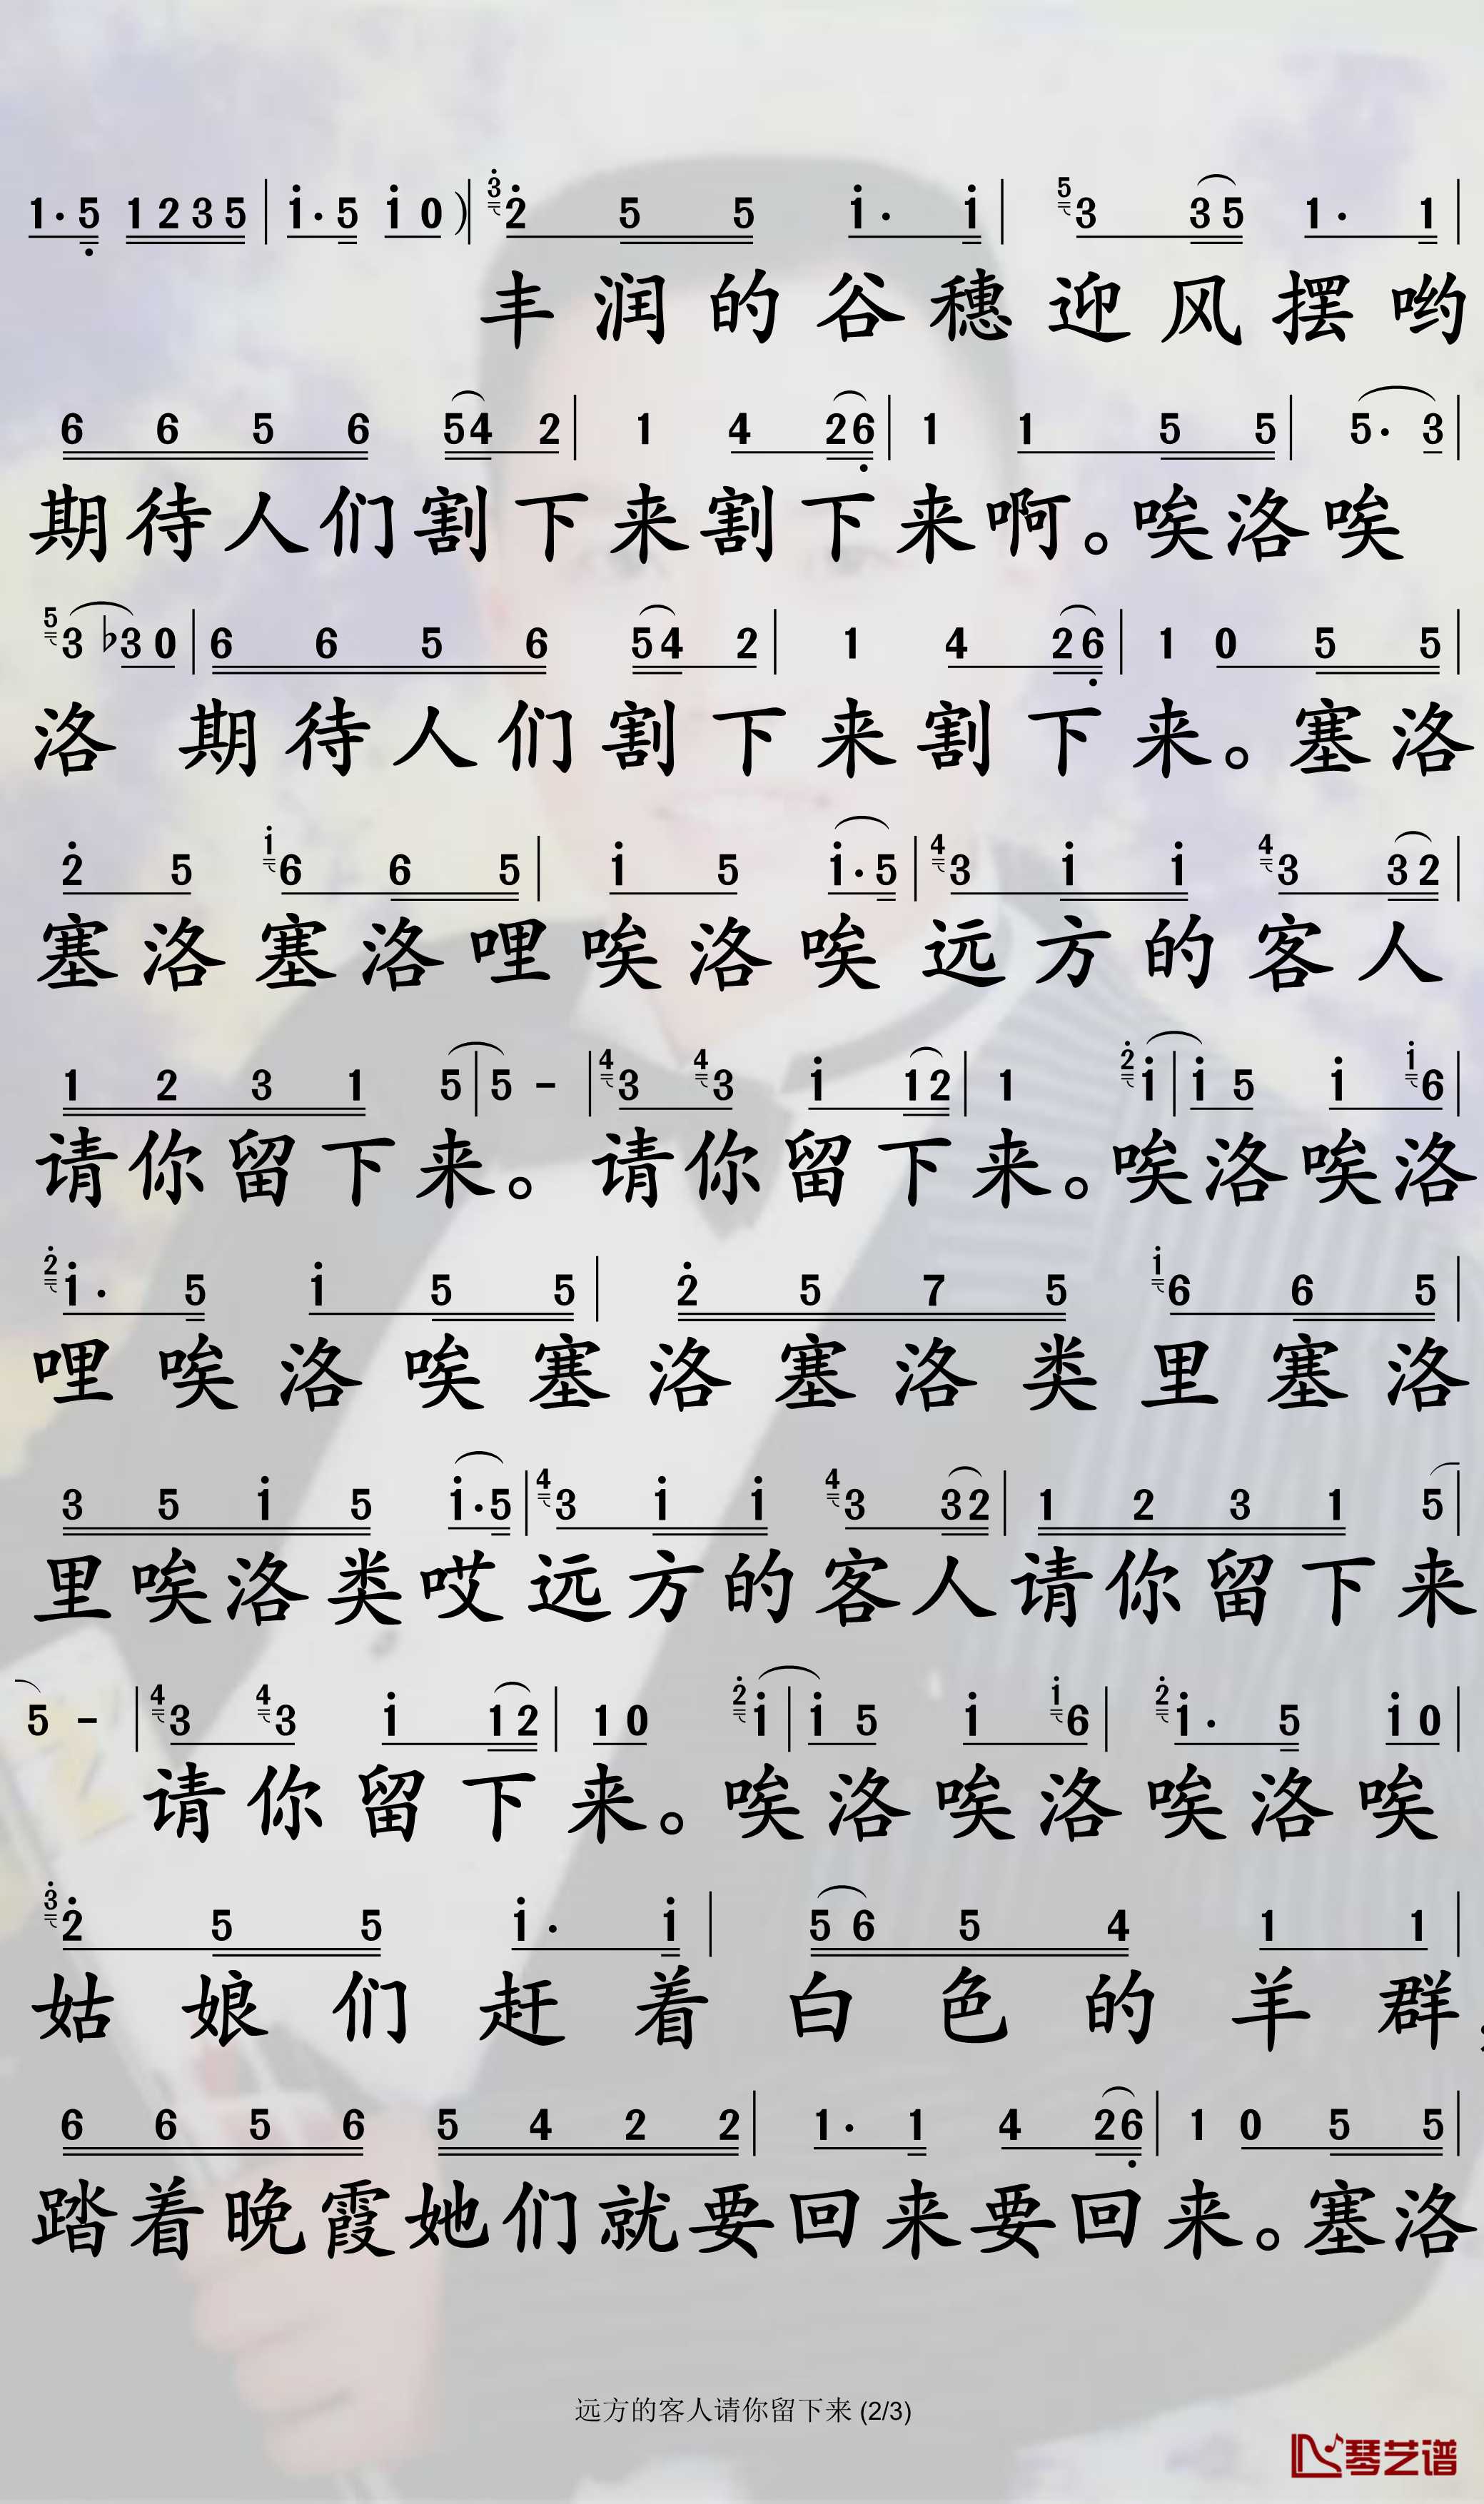 1· 5 1 2 3 5 | i· 5 i 0 )| 3 2 5 5 i· i | 5 3 3 5 1· 1 |
丰润的谷穗迎风摆哟
6 6 5 6 5 4 2 | 1 4 2 6 | 1 1 5 5 | 5· 3 |
期待人们割下来割下来啊。唉洛唉
5 3 ♭3 0 | 6 6 5 6 5 4 2 | 1 4 2 6 | 1 0 5 5 |
洛 期待人们割下来割下来。塞洛
2 5 i 6 6 5 | i 5 i· 5 | 4 3 i i 4 3 3 2 |
塞洛塞洛哩唉洛唉远方的客人
1 2 3 1 5 | 5 - | 4 3 4 3 i 1 2 | 1 2 i | i 5 i i 6 |
请你留下来。请你留下来。唉洛唉洛
2 i· 5 i 5 5 | 2 5 7 5 i 6 6 5 |
哩唉洛唉塞洛塞洛类里塞洛
3 5 i 5 i· 5 | 4 3 i i 4 3 3 2 | 1 2 3 1 5 |
里唉洛类哎远方的客人请你留下来
5 - | 4 3 4 3 i 1 2 | 1 0 2 i | i 5 i i 6 | 2 i· 5 i 0 |
请你留下来。唉洛唉洛唉洛唉
3 2 5 5 i· i | 5 6 5 4 1 1 |
姑娘们赶着白色的羊群,
6 6 5 6 5 4 2 2 | 1· 1 4 2 6 | 1 0 5 5 |
踏着晚霞她们就要回来要回来。塞洛
远方的客人请你留下来 (2/3)
琴艺谱